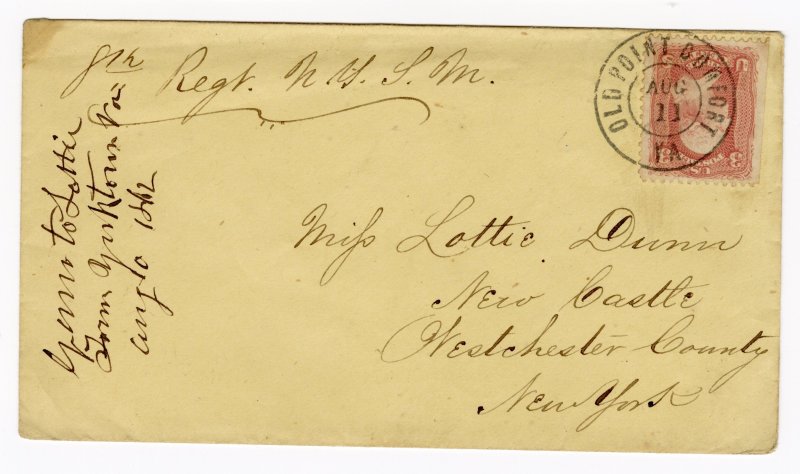 8th Regt. N. Y. S. M.
OLD POINT COMFORT
AUG
11
VA
U 3
U.S.
Miss Lottie Dunn
New Castle
Westchester County
New York
to Lottie
From Yorktown Va.
aug 10 1862